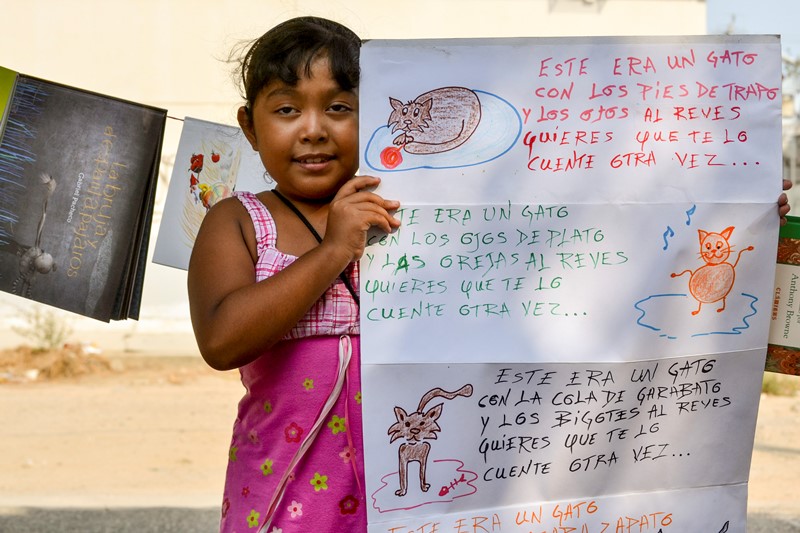 La bruja y
el espantapájaros
Gabriel Pacheco
ESTE ERA UN GATO
CON LOS PIES DE TRAPO
Y LOS OJOS AL REVES
QUIERES QUE TE LO
CUENTE OTRA VEZ...
ESTE ERA UN GATO
CON LOS OJOS DE PLATO
Y LAS OREJAS AL REVES
QUIERES QUE TE LO
CUENTE OTRA VEZ...
ESTE ERA UN GATO
CON LA COLA DE GARABATO
Y LOS BIGOTES AL REYES
QUIERES QUE TE LO
CUENTE OTRA VEZ...
ESTE ERA UN GATO
ZAPATO
Anthony Browne